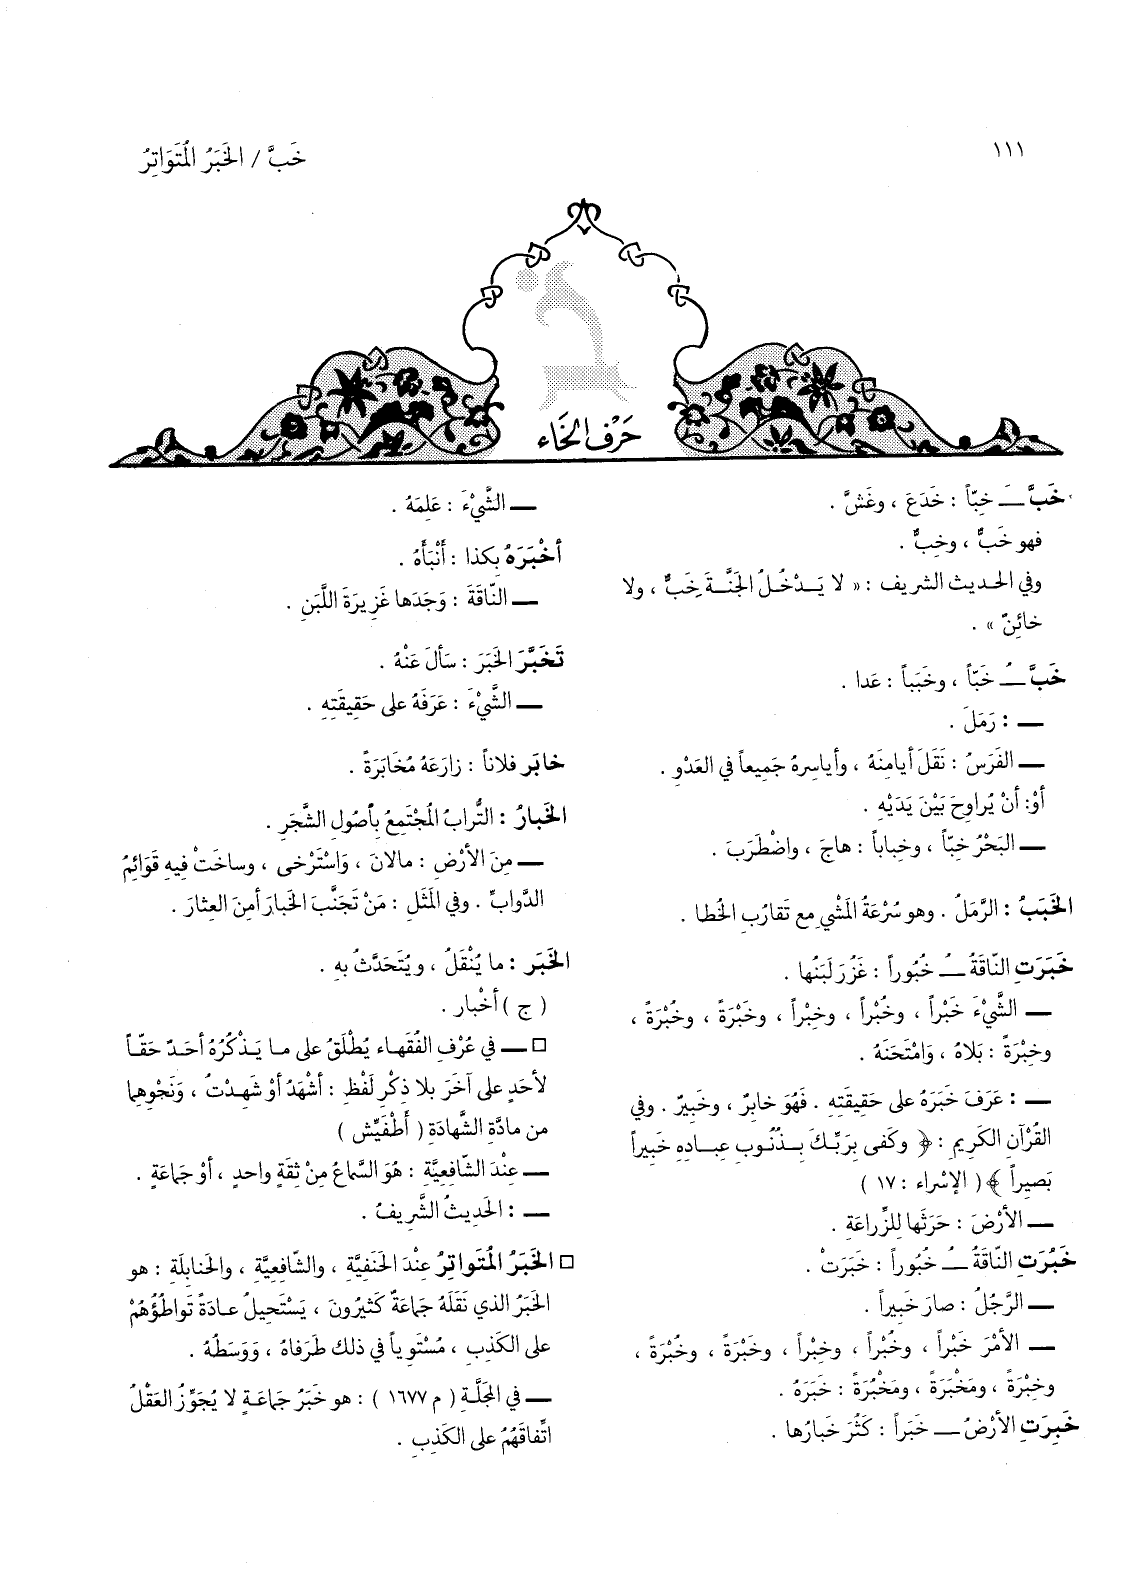 ١١١
خَبَّ / الخَبَرُ المُتَوَاتِرُ
حَرْف الخَاء
خَبَّ ـــَ خِبّاً : خَدَعَ ، وغَشَّ .
فهو خَبٌّ ، وخِبٌّ .
وفي الحديث الشريف : « لا يَدْخُلُ الجَنَّةَ خَبٌّ ، ولا
خائِنٌ » .
خَبَّ ـــُ خَبّاً ، وخَبَباً : عَدا .
ـــ : رَمَلَ .
ـــ الفَرَسُ : نَقَلَ أيامِنَهُ ، وأياسِرهُ جَمِيعاً في العَدْوِ .
أوْ: أنْ يُراوِحَ بَيْنَ يَدَيْهِ .
ـــ البَحْرُ خبّاً ، وخِباباً : هاجَ ، واضْطَرَبَ .
الخَبَبُ : الرَّمَلُ . وهو سُرْعَةُ المَشْيِ مع تَقارُبِ الخُطا .
خَبَرَتِ النّاقَةُ ـــُ خُبُوراً : غَزُرَ لَبَنُها .
ـــ الشَّيْءَ خَبْراً ، وخُبْراً ، وخِبْراً ، وخَبْرَةً ، وخُبْرَةً ،
وخِبْرَةً : بَلاهُ ، وَامْتَحَنَهُ .
ـــ : عَرَفَ خَبَرَهُ على حَقِيقَتِهِ . فَهُوَ خابِرٌ ، وخَبِيرٌ . وفي
القُرْآنِ الكَرِيمِ : ﴿ وكَفى بِرَبِّكَ بِذُنُوبِ عِبادِهِ خَبِيراً
بَصِيراً ﴾ ( الإسْراء : ١٧ )
ـــ الأرْضَ : حَرَثَها للزِّراعَةِ .
خَبُرَتِ النّاقَةُ ـــُ خُبُوراً : خَبَرَتْ .
ـــ الرَّجُلُ : صارَ خَبِيراً .
ـــ الأمْرَ خَبْراً ، وخُبْراً ، وخِبْراً ، وخَبْرَةً ، وخُبْرَةً ،
وخِبْرَةً ، ومَخْبَرَةً ، ومَخْبُرَةً : خَبَرَهُ .
خَبِرَتِ الأرْضُ ـــَ خَبَراً : كَثُرَ خَبارُها .
ـــ الشَّيْءَ : عَلِمَهُ .
أخْبَرَهُ بكذا : أنْبَأهُ .
ـــ النّاقَةَ : وَجَدَها غَزِيرَةَ اللَّبَنِ .
تَخَبَّرَ الخَبَرَ : سَألَ عَنْهُ .
ـــ الشَّيْءَ : عَرَفَهُ على حَقِيقَتِهِ .
خابَر فلاناً : زارَعَهُ مُخَابَرَةً .
الخَبارُ : التُّرابُ المُجْتَمِعُ بِأصُولِ الشَّجَرِ .
ـــ مِنَ الأرْضِ : مالانَ ، وَاسْتَرْخى ، وساخَتْ فِيهِ قَوَائِمُ
الدَّوابِّ . وفي المَثَلِ : مَنْ تَجَنَّبَ الخَبارَ أمِنَ العِثارَ .
الخَبَر : ما يُنْقَلُ ، ويُتَحَدَّثُ بِهِ .
( ج ) أخْبار .
□ ـــ في عُرْفِ الفُقَهاء يُطْلَقُ على ما يَذْكُرُهُ أحَدٌ حَقّاً
لأحَدٍ على آخَرَ بلا ذِكْرِ لَفْظِ : أشْهَدُ أوْ شَهِدْتُ ، وَنَحْوِهِما
من مادَّةِ الشَّهادَةِ ( أَطْفَيِّش )
ـــ عِنْدَ الشّافِعِيَّةِ : هُوَ السَّماعُ مِنْ ثِقَةٍ واحِدٍ ، أوْ جَماعَةٍ .
ـــ : الحَدِيثُ الشَّرِيفُ .
□ الخَبَرُ المُتَواتِرُ عِنْدَ الحَنَفِيَّةِ ، والشّافِعِيَّةِ ، والحَنابِلَةِ : هو
الخَبَرُ الذي نَقَلَهُ جَماعَةٌ كَثيرُونَ ، يَسْتَحِيلُ عادَةً تَواطُؤُهُمْ
على الكَذِبِ ، مُسْتَوِياً في ذلك طَرَفاهُ ، وَوَسَطُهُ .
ـــ في المَجَلَّةِ ( م ١٦٧٧ ) : هو خَبَرُ جَماعَةٍ لا يُجَوِّزُ العَقْلُ
اتِّفاقَهُمْ على الكَذِبِ .